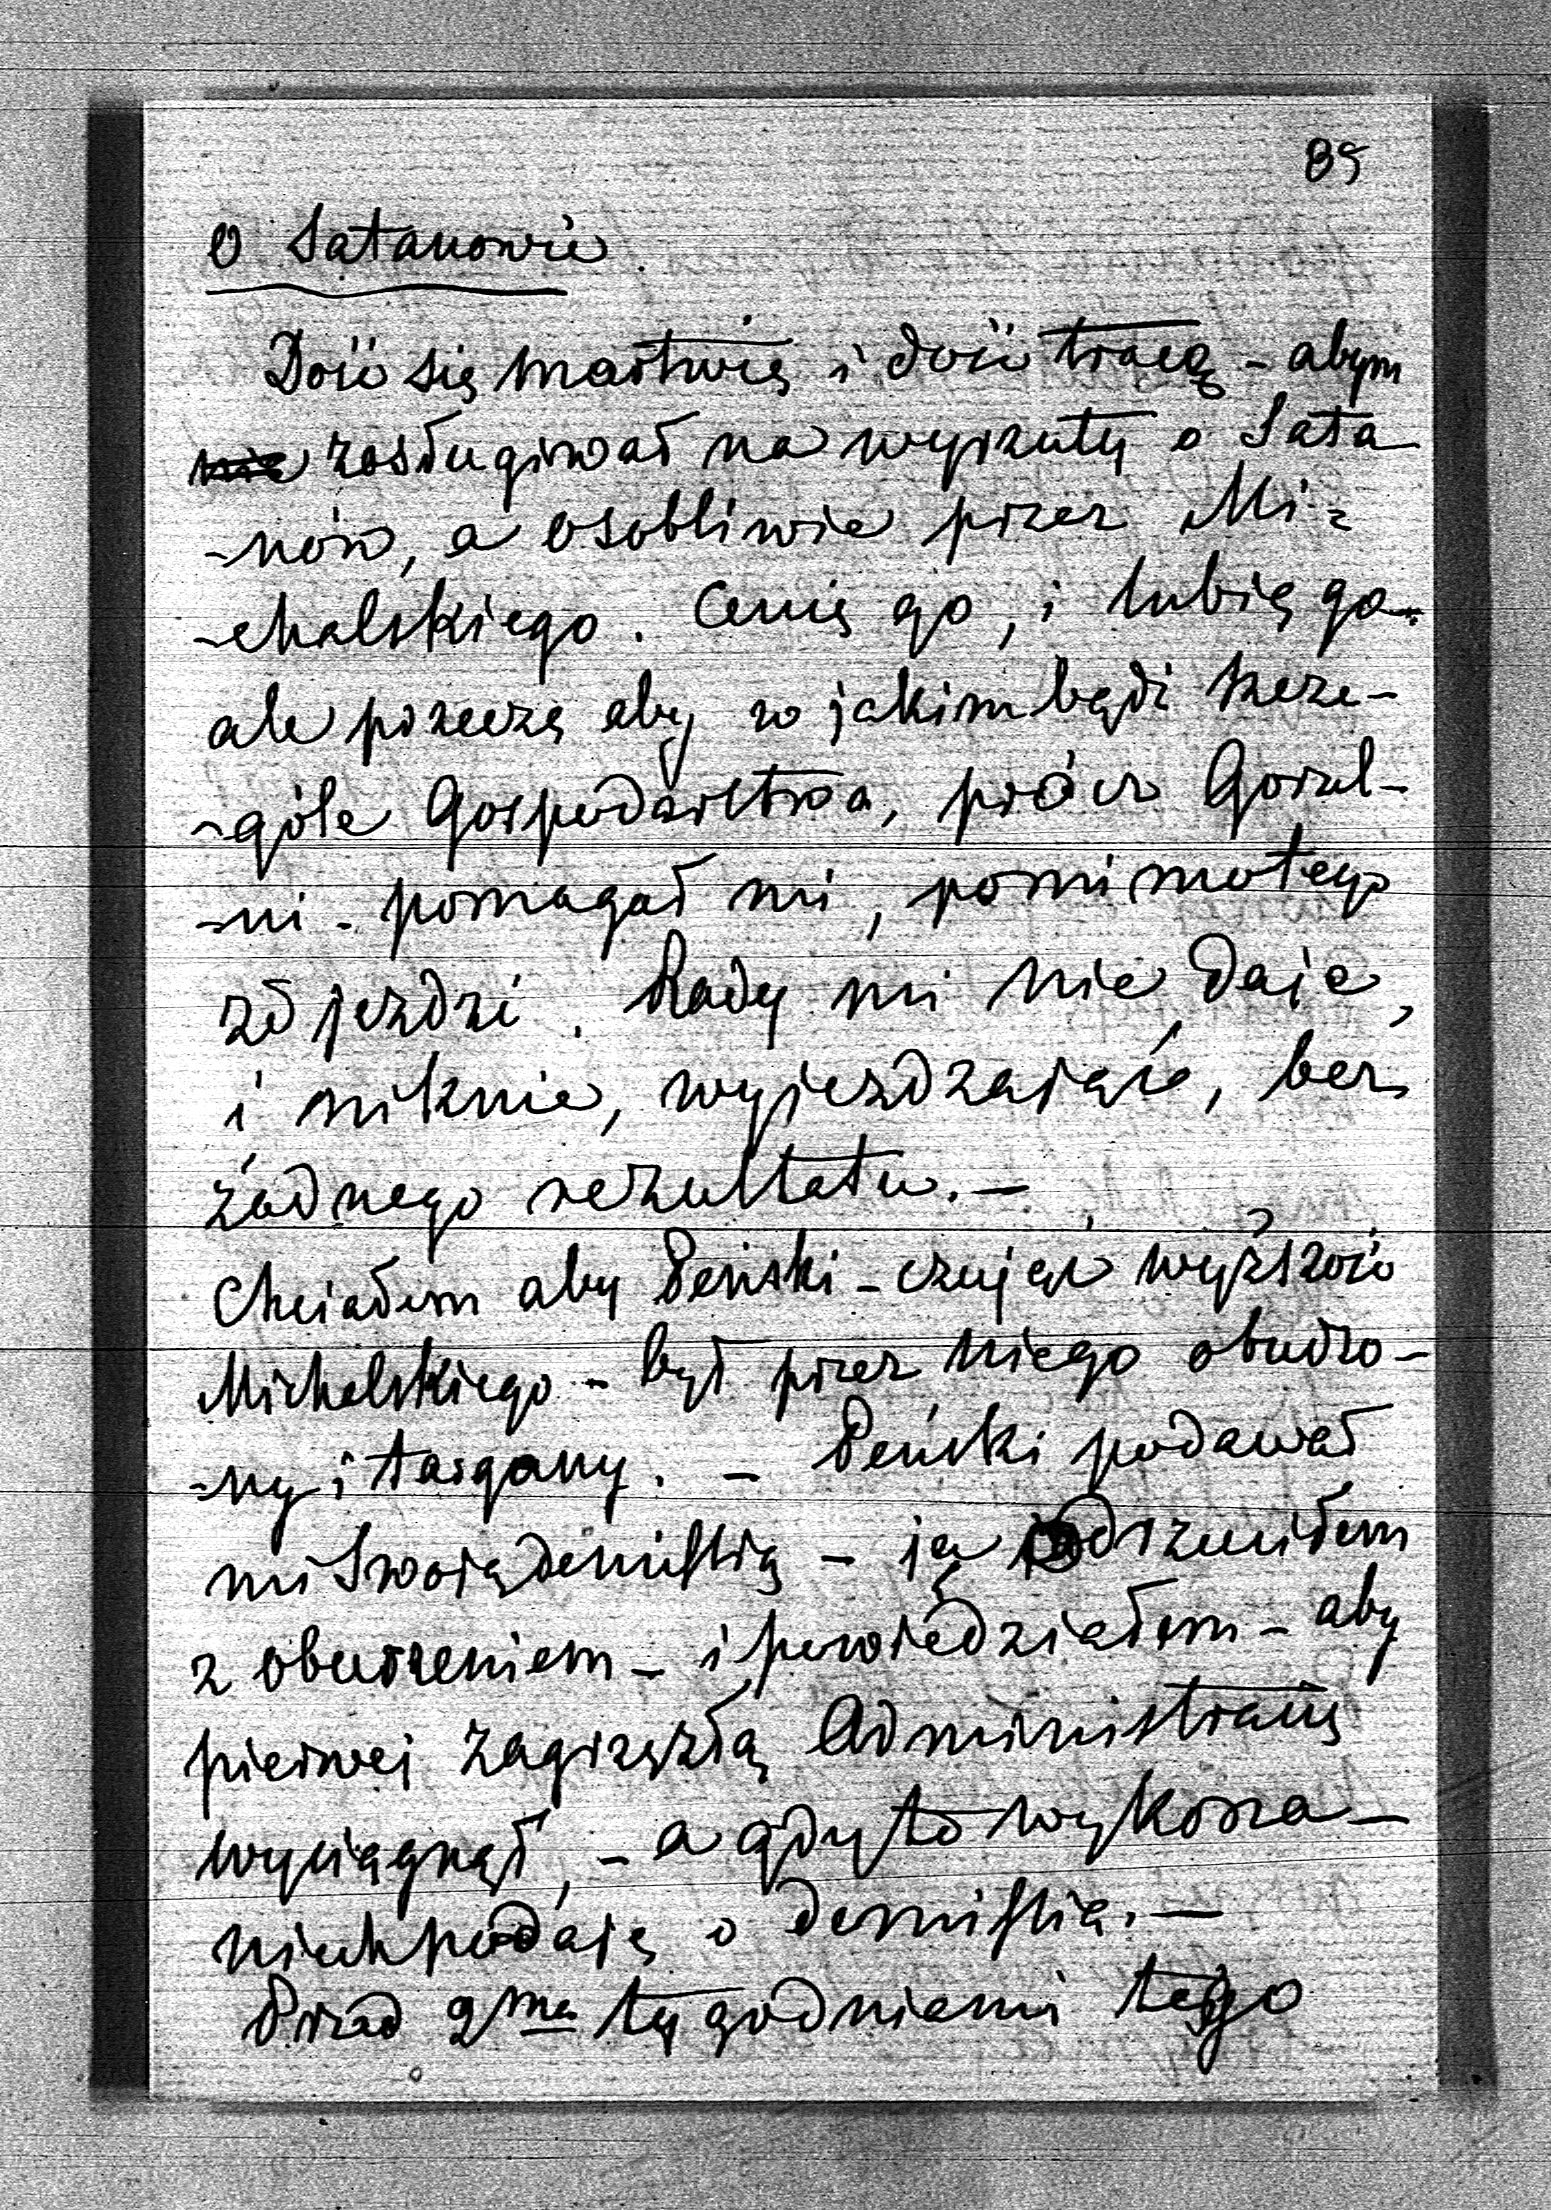 89
O Satanowie
Dość się martwię i dość tracę - abym
nie zasługiwał na wyrzuty o Sata
-nów, a osobliwie przez Mi-
-chalskiego. Cenię go, i lubię go -
ale przeczę aby w jakim bądź szcze-
-góle Gospodarstwa, prócz Gorzel-
-ni - pomagał mi, pomimo tego
że jezdzi. Rady mi nie daje,
i niknie, wyjezdzając, bez
żadnego rezultatu. -
Chciałem aby Peński - czując wyższość
Michalskiego - był przez niego obudzo-
-ny i targany. - Peński podawał
mi Swoją demissią - ja odrzuciłem
z oburzeniem - i powiedziałem - aby
pierwej zagrzęzłą Administracię
wyciągnął, - a gdy to wykona -
niech podaję o demissią. -
Przed 2ma tygodniami tego